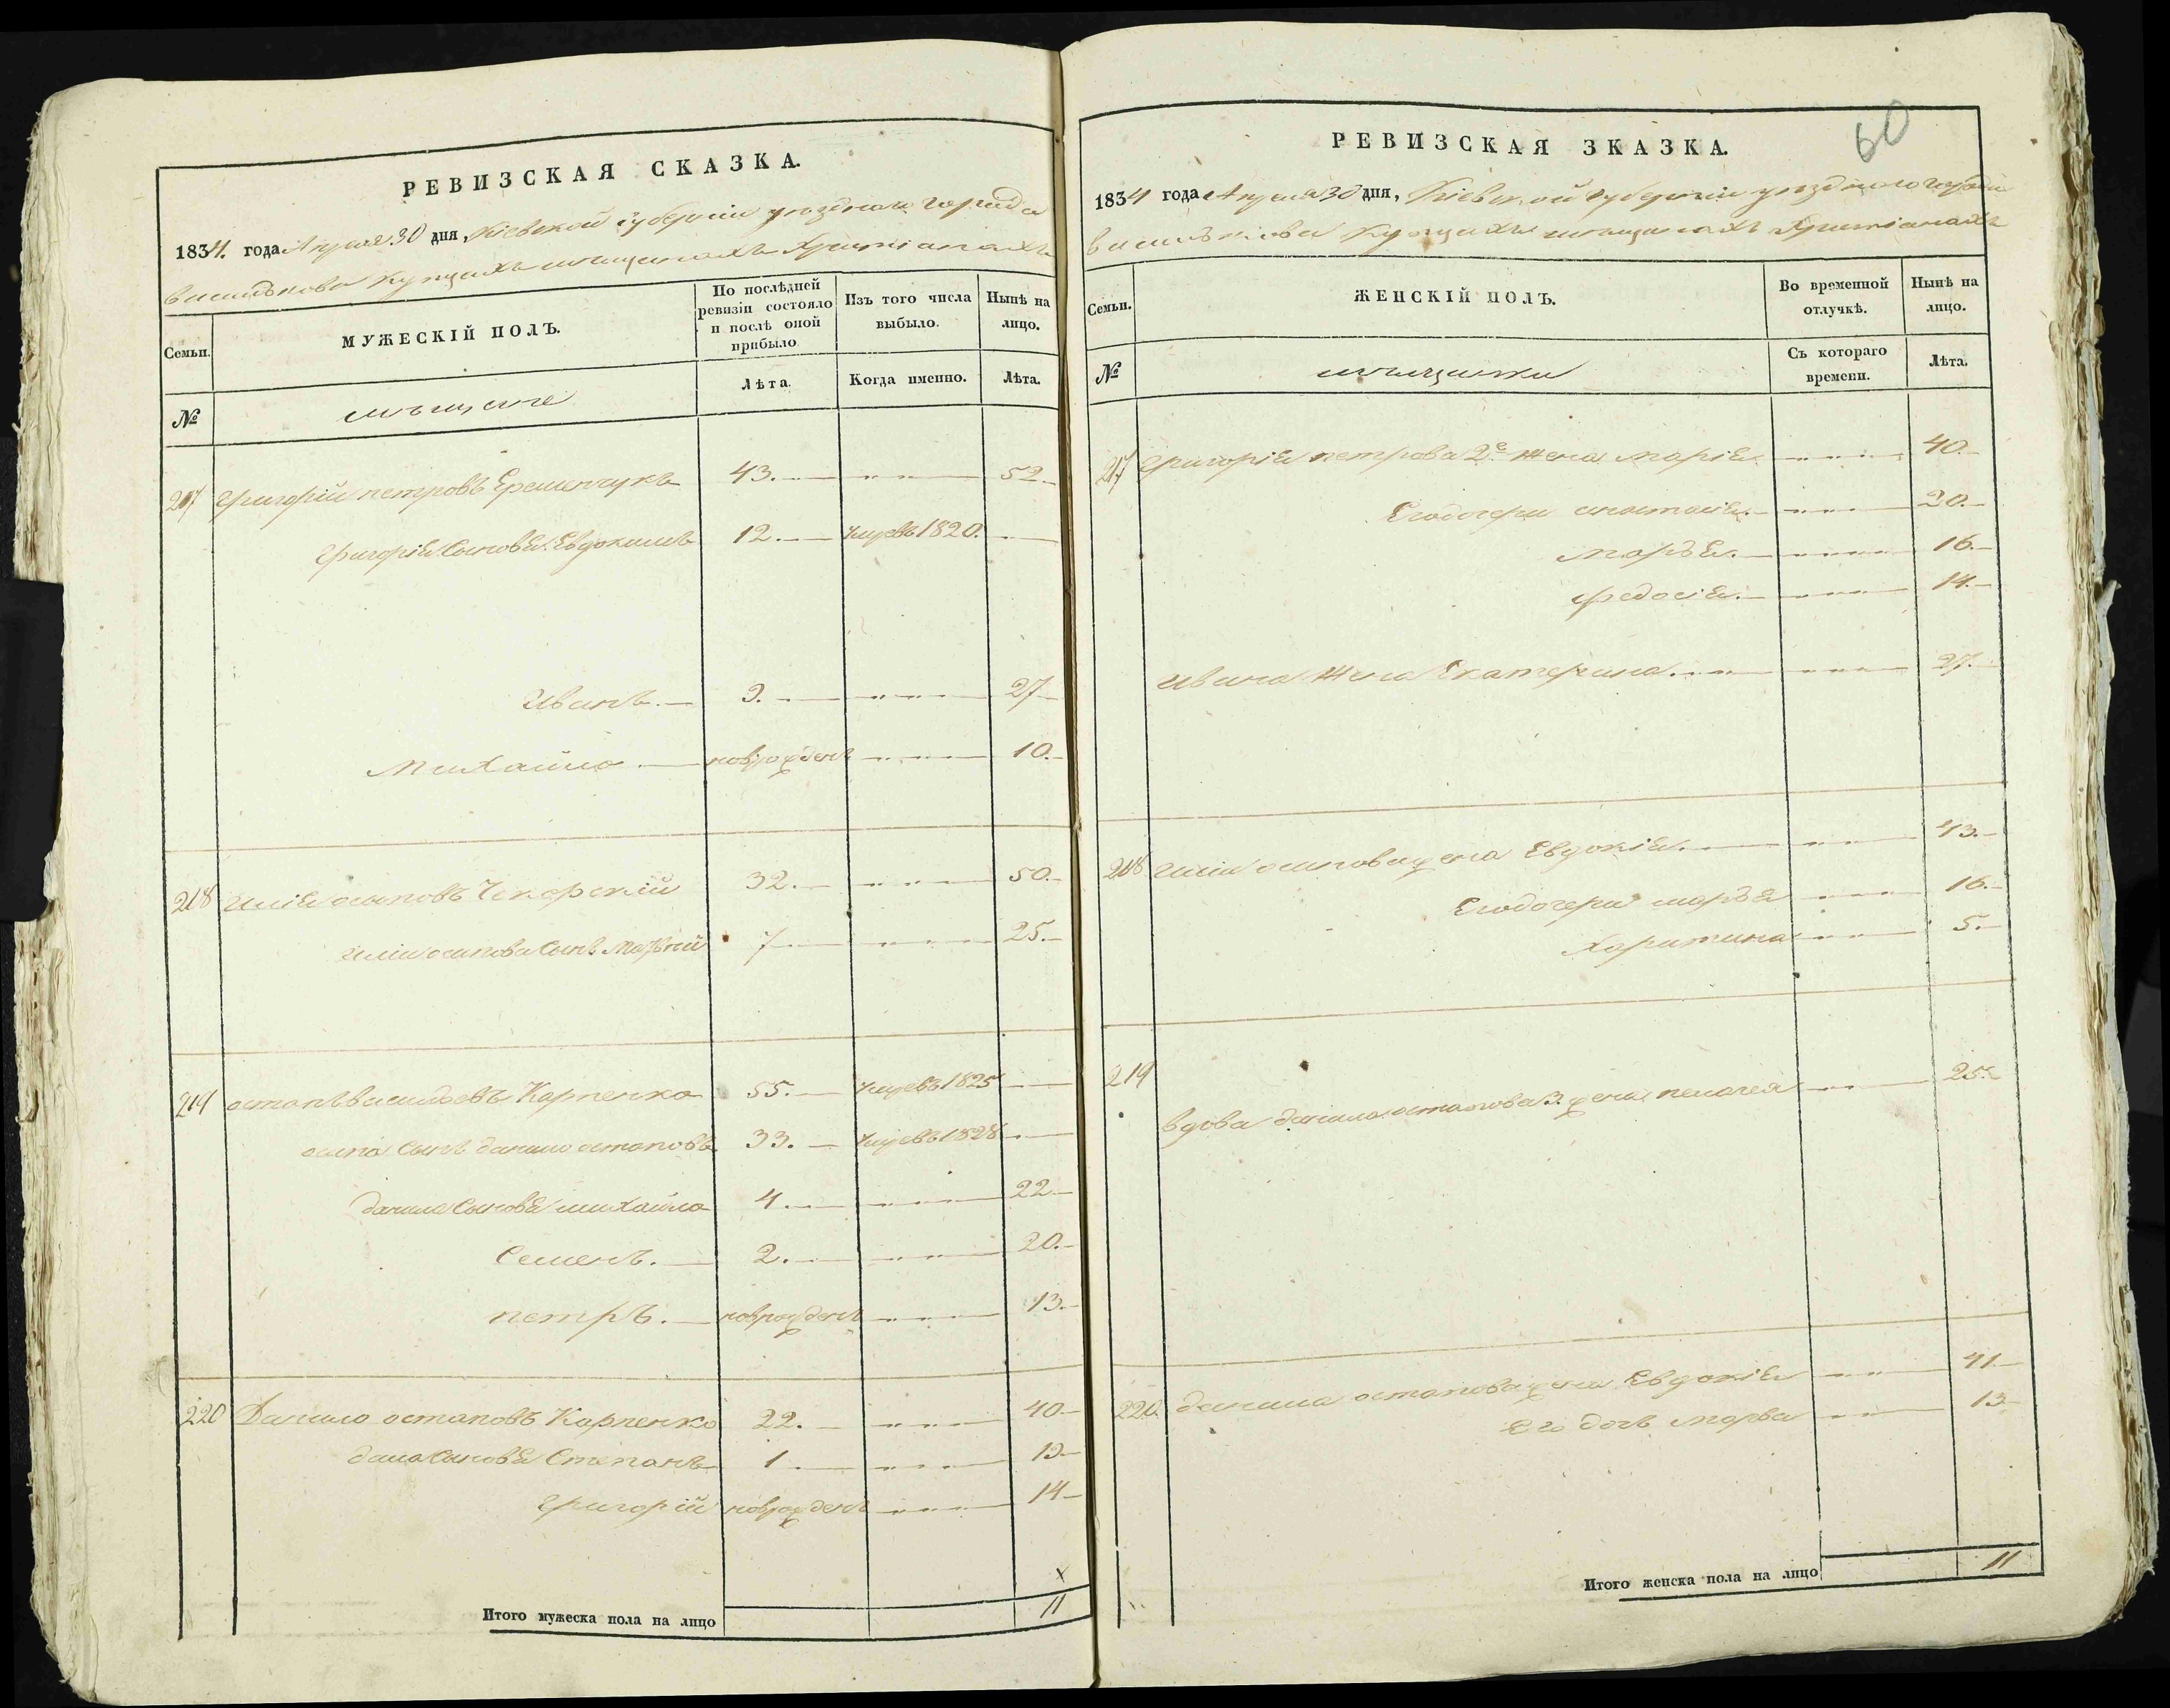 РЕВИЗСКАЯ СКАЗКА.
1834. года Апреля 30 дня, Кіевской губерніи уезднаго города
Василькова купцахъ мещанахъ Христіанахъ
Семьи.
МУЖЕСКІЙ ПОЛЪ.
По послѣдней ревизіи состояло и послѣ оной прибыло
Изъ того числа выбыло.
Нынѣ на лицо.
№
мещане
Лѣта.
Когда именно.
Лѣта.
217 Григорій петровъ Еременчукъ 43. 52
Григорія сыновья Евдокимъ 12. умре въ 1820.
Иванъ. 9. 27
Михайло новрожденъ 10.
218 Илія осиповъ Чекерскій 32. 50.
Иліи осипова сынъ 7 25.
219 остапъ васильевъ Карпенко 55. умре въ 1825
сынъ данило остаповъ 33. умре въ 1828
данила сыновья михайло 4. 22
Семенъ. 2. 20.
петръ. новрожденъ 13.
220 Данило остаповъ Карпенко 22. 40
сыновья Степанъ 1 19
григорій новрожденъ 14
х
Итого мужеска пола на лицо 11
60
РЕВИЗСКАЯ ЗКАЗКА.
1834 года Апреля 30 дня, Кіевской губерніи уезднаго города
Василькова Купцахъ мещанахъ Христіанахъ
Семьи.
ЖЕНСКІЙ ПОЛЪ.
Во временной отлучкѣ.
Нынѣ на лицо.
№
мещанки
Съ котораго времени.
Лѣта.
217 Григорія петрова 2е жена марія 40.
Его дочери анастасія 20.
марья. 16.
федосія. 14.
Ивана жена Екатерина. 27.
218 Иліи осипова жена Евдокія. 43.
Его дочери марья 16.
Харитина 5.
219
вдова данила остапова 3. жена пелагея 25.
220. данила остапова жена Евдокія 41
Его дочь марва 13
Итого женска пола на лицо 11